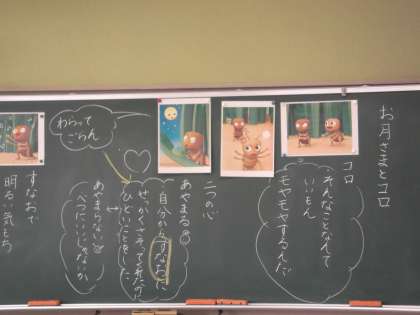 お月さまとコロ
コロ
そんなことなんて
いいもん
モヤモヤするんだ
二つの心
あやまる
自分から すなおに
せっかくさそってくれたのに
ひどいことをした
あやまらない
べつにいいじゃないか
わらって
ごらん
すなおで
明るい気もち